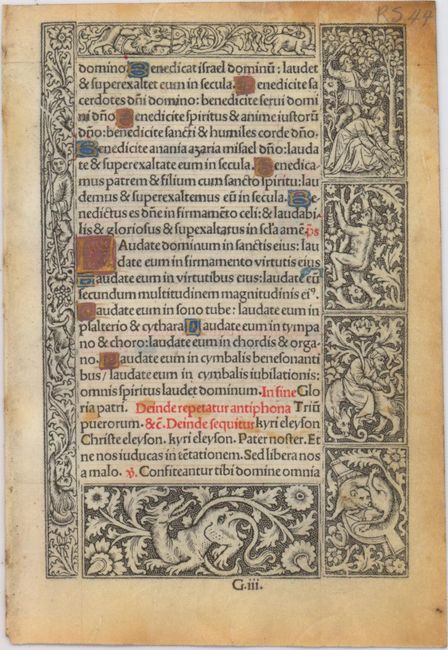 RS 44
domino. Benedicat israel dominū: laudet
& superexaltet eum in secula. Benedicite sa
cerdotes dñi domino: benedicite serui domi
ni dño. Benedicite spiritus & anime iustorū
dño: benedicite sancti & humiles corde dño.
Benedicite anania azaria misael dño: lauda
te & superexaltate eum in secula. Benedica-
mus patrem & filium cum sancto spiritu: lau
demus & superexaltemus eū in secula. Be-
nedictus es dñe in firmamēto celi: & laudabi-
lis & gloriosus & superexaltatus in scła amē. ps
LAudate dominum in sanctis eius: lau
date eum in firmamento virtutis eius
Laudate eum in virtutibus eius: laudate eū
secundum multitudinem magnitudinis eiꝰ.
Laudate eum in sono tube: laudate eum in
psalterio & cythara Laudate eum in tympa
no & choro: laudate eum in chordis & orga-
no. Laudate eum in cymbalis benesonanti
bus / laudate eum in cymbalis iubilationis:
omnis spiritus laudet dominum. In fine Glo
ria patri. Deinde repetatur antiphona Triū
puerorum. &c. Deinde sequitur kyri eleyson
Christe eleyson. kyri eleyson. Pater noster. Et
ne nos iuducas in tētationem. Sed libera nos
a malo. ℣. Confiteantur tibi domine omnia
G.iii.